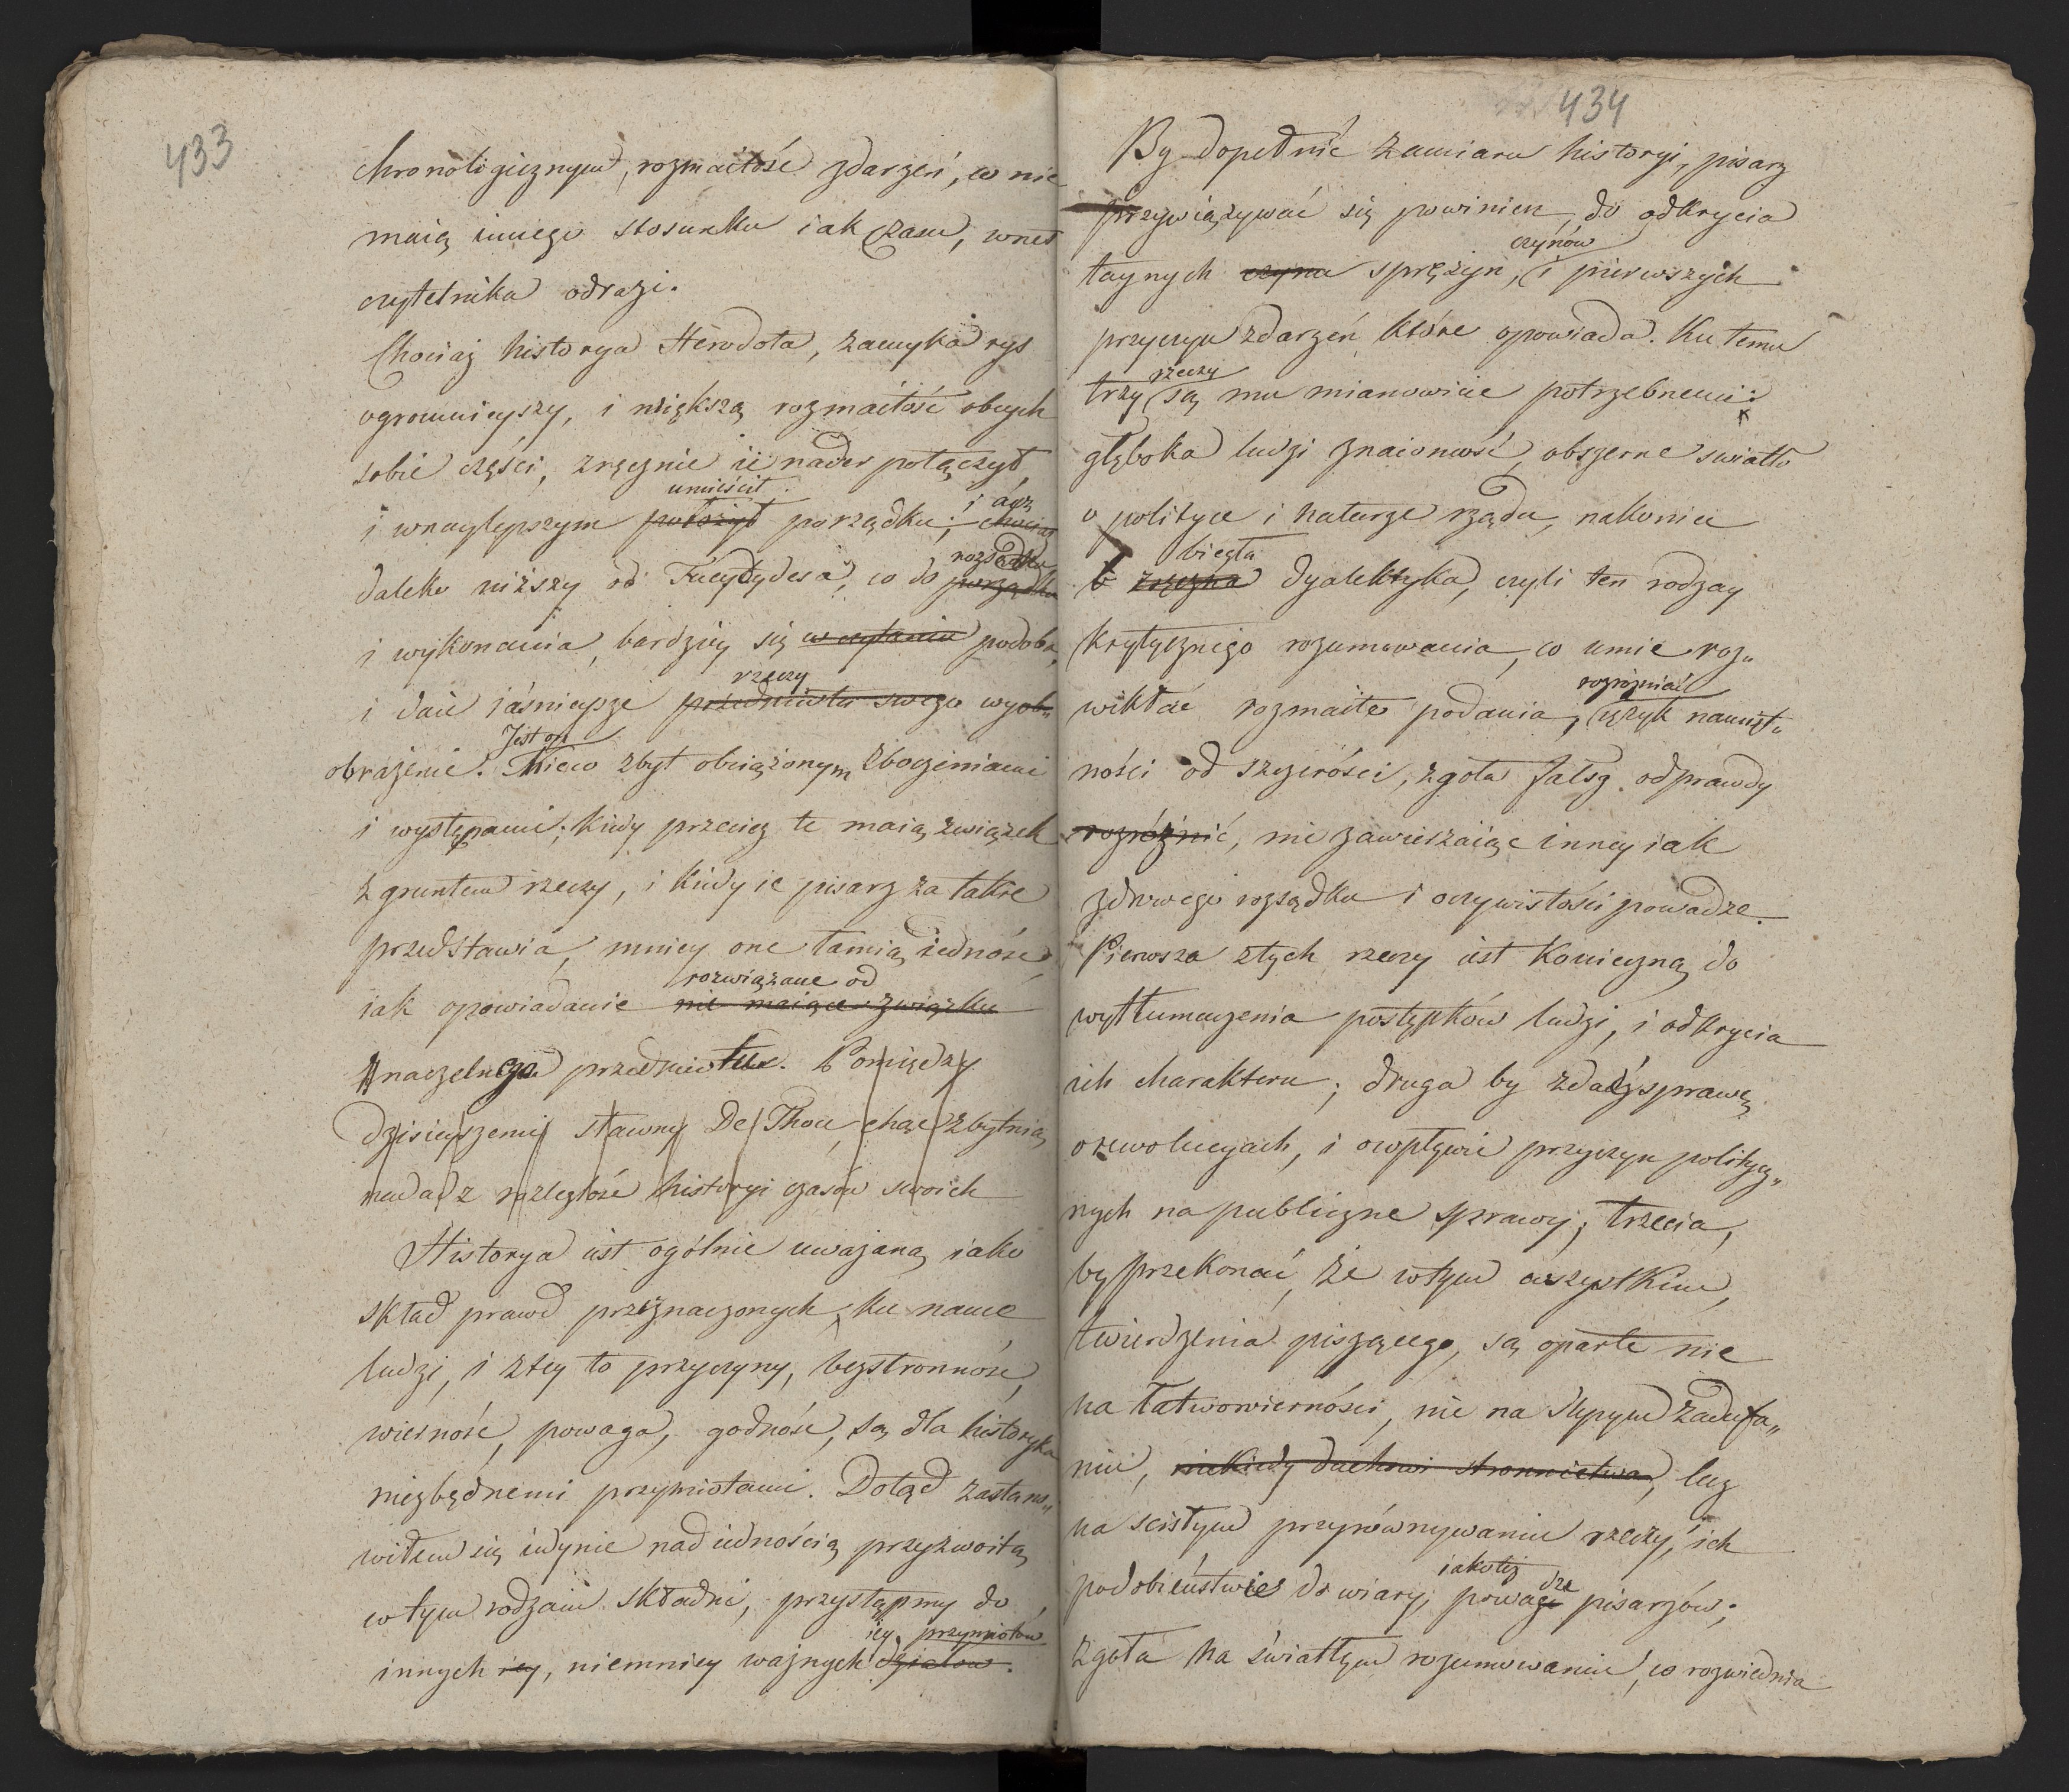 433
chronologicznym, rozmaitość zdarzeń, co nie
maią innego stosunku iak czasu, wnet
czytelnika odrazi.
Chociaż historya Herodota, zamyka rys
ogromnieyszy, i większą rozmaitość obcych
sobie części, zręcznie ie nader połączył,
umieścił
i w naylepszym położył porządku; i acz chociaż
rozsądku
daleko niższy od Tucydydesa, co do porządku
i wykonania, bardziey się w czytaniu podoba,
rzeczy
i daie iaśnieysze przedmiotu swego wyob„
Jest on
obrażenie. Nieco zbyt obciążonym zboczeniami
i występami; kiedy przecież te maią związek
z gruntem rzeczy, i kiedy ie pisarz za takie
przedstawia, mniey one łamią iedność,
rozwiązane od
iak opowiadanie nie maiące związku
naczelnego przedmiotu. Pomiędzy
dzisieyszemi sławny De Thou, chąc zbytnią
nadadz rozległość historyi czasów swoich
Historya iest ogólnie uważaną iako
skład prawd przeznaczonych ku nauce
ludzi, i z tey to przyczyny, bezstronność,
wierność, powaga, godność, są dla historyka
niezbędnemi przymiotami. Dotąd zastano„
wiłem się iedynie nad iednością przyzwoitą
w tym rodzaiu składni, przystąpmy do
iey przymiotów
innych iey, niemniey ważnych działów.
434
By dopełnić zamiaru historyi, pisarz
przywiązywać się powinien do odkrycia
czynów
taynych czyna sprężyn, i pierwszych
przyczyn zdarzeń które opowiada. Ku temu
rzeczy
trzy są mu mianowicie potrzebnemi:
głęboka ludzi znaiomość, obszerne swiatło
o polityce i naturze rządu, nakoniec
biegła
zręczna dyalektyka, czyli ten rodzay
krytycznego rozumowania, co umie roz„
rozróżniać
wikłać rozmaite podania, ięzyk namięt„
ności od szczerości, zgoła fałsz od prawdy
rozróżnić, nie zawieszaiąc inney iak
zdrowego rozsądku i oczywistości powadze.
Pierwsza z tych rzeczy iest konieczną do
wytłumaczenia postępków ludzi, i odkrycia
ich charakteru; druga by zdadź sprawę
o rewolucyach, i o wpływie przyczyn politycz„
nych na publiczne sprawy; trzecia,
by przekonać, że w tym wszystkim,
twierdzenia piszącego, są oparte nie
na łatwowierności, nie na ślepym zadufa„
niu, niekiedy duchowi stronnictwa, lecz
na scisłym przyrównywaniu rzeczy, ich
iakoteż dze
podobieństwie do wiary, powagi pisarzów;
zgoła na światłym rozumowaniu, co rozwiednia